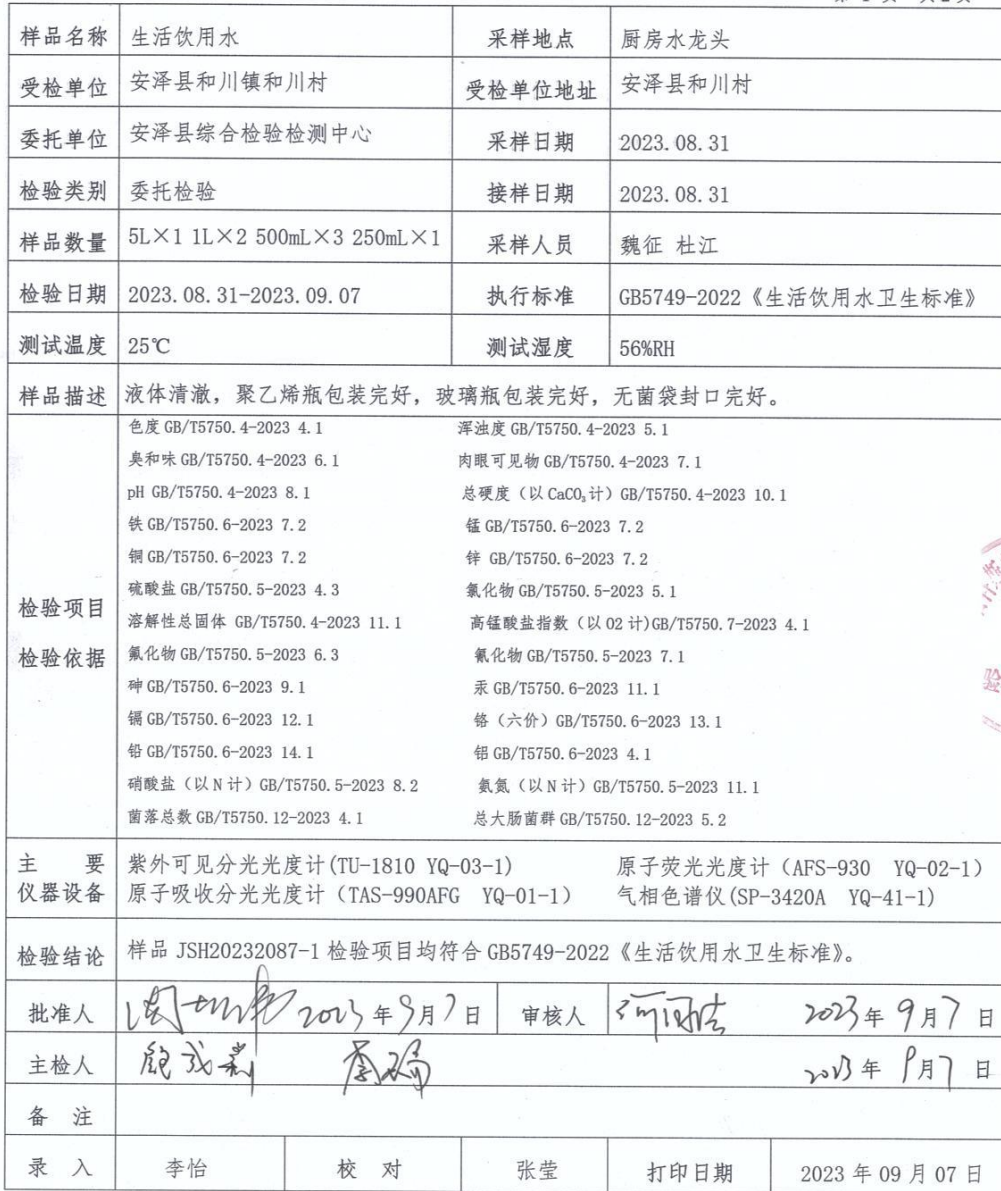 样品名称 生活饮用水 采样地点 厨房水龙头
受检单位 安泽县和川镇和川村 受检单位地址 安泽县和川村
委托单位 安泽县综合检验检测中心 采样日期 2023.08.31
检验类别 委托检验 接样日期 2023.08.31
样品数量 5L×1 1L×2 500mL×3 250mL×1 采样人员 魏征 杜江
检验日期 2023.08.31-2023.09.07 执行标准 GB5749-2022《生活饮用水卫生标准》
测试温度 25℃ 测试湿度 56%RH
样品描述 液体清澈，聚乙烯瓶包装完好，玻璃瓶包装完好，无菌袋封口完好。
检验项目
检验依据
色度 GB/T5750.4-2023 4.1 浑浊度 GB/T5750.4-2023 5.1
臭和味 GB/T5750.4-2023 6.1 肉眼可见物 GB/T5750.4-2023 7.1
pH GB/T5750.4-2023 8.1 总硬度（以 CaCO₃计）GB/T5750.4-2023 10.1
铁 GB/T5750.6-2023 7.2 锰 GB/T5750.6-2023 7.2
铜 GB/T5750.6-2023 7.2 锌 GB/T5750.6-2023 7.2
硫酸盐 GB/T5750.5-2023 4.3 氯化物 GB/T5750.5-2023 5.1
溶解性总固体 GB/T5750.4-2023 11.1 高锰酸盐指数（以 O2 计)GB/T5750.7-2023 4.1
氟化物 GB/T5750.5-2023 6.3 氰化物 GB/T5750.5-2023 7.1
砷 GB/T5750.6-2023 9.1 汞 GB/T5750.6-2023 11.1
镉 GB/T5750.6-2023 12.1 铬（六价）GB/T5750.6-2023 13.1
铅 GB/T5750.6-2023 14.1 铝 GB/T5750.6-2023 4.1
硝酸盐（以 N 计）GB/T5750.5-2023 8.2 氨氮（以 N 计）GB/T5750.5-2023 11.1
菌落总数 GB/T5750.12-2023 4.1 总大肠菌群 GB/T5750.12-2023 5.2
主 要
仪器设备
紫外可见分光光度计(TU-1810 YQ-03-1) 原子荧光光度计（AFS-930 YQ-02-1）
原子吸收分光光度计（TAS-990AFG YQ-01-1） 气相色谱仪(SP-3420A YQ-41-1)
检验结论 样品 JSH20232087-1 检验项目均符合 GB5749-2022《生活饮用水卫生标准》。
批准人 2023 年 9 月 7 日 审核人 2023 年 9 月 7 日
主检人 2023 年 9 月 7 日
备 注
录 入 李怡 校 对 张莹 打印日期 2023 年 09 月 07 日